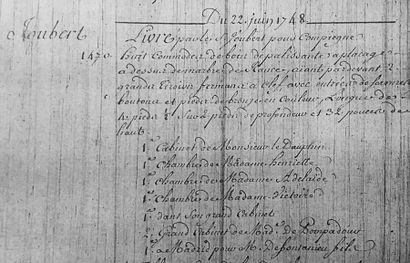 Du 22. juin 1748.
Joubert
Livré par le S. Joubert pour Compiegne
1470 huit Commodes de bois de palissante à placage
à dessus de marbre de Rance, ayant par devant 2
grands tiroirs fermans à clef, avec entrées de serrures
boutons et pieds de bronze en Couleur, Longues de
pieds ½ sur 2 pieds de profondeur et 32 pouces de
haut.
1. Cabinet de Monsieur le Dauphin
1. Chambre de Madame henriette
1. Chambre de Madame Adelaïde
1. Chambre de Madame Victoire
1. dans son grand Cabinet
1. Grand Cabinet de Mad. de Pompadour
1. a Madrid pour M. de fontanieu fils